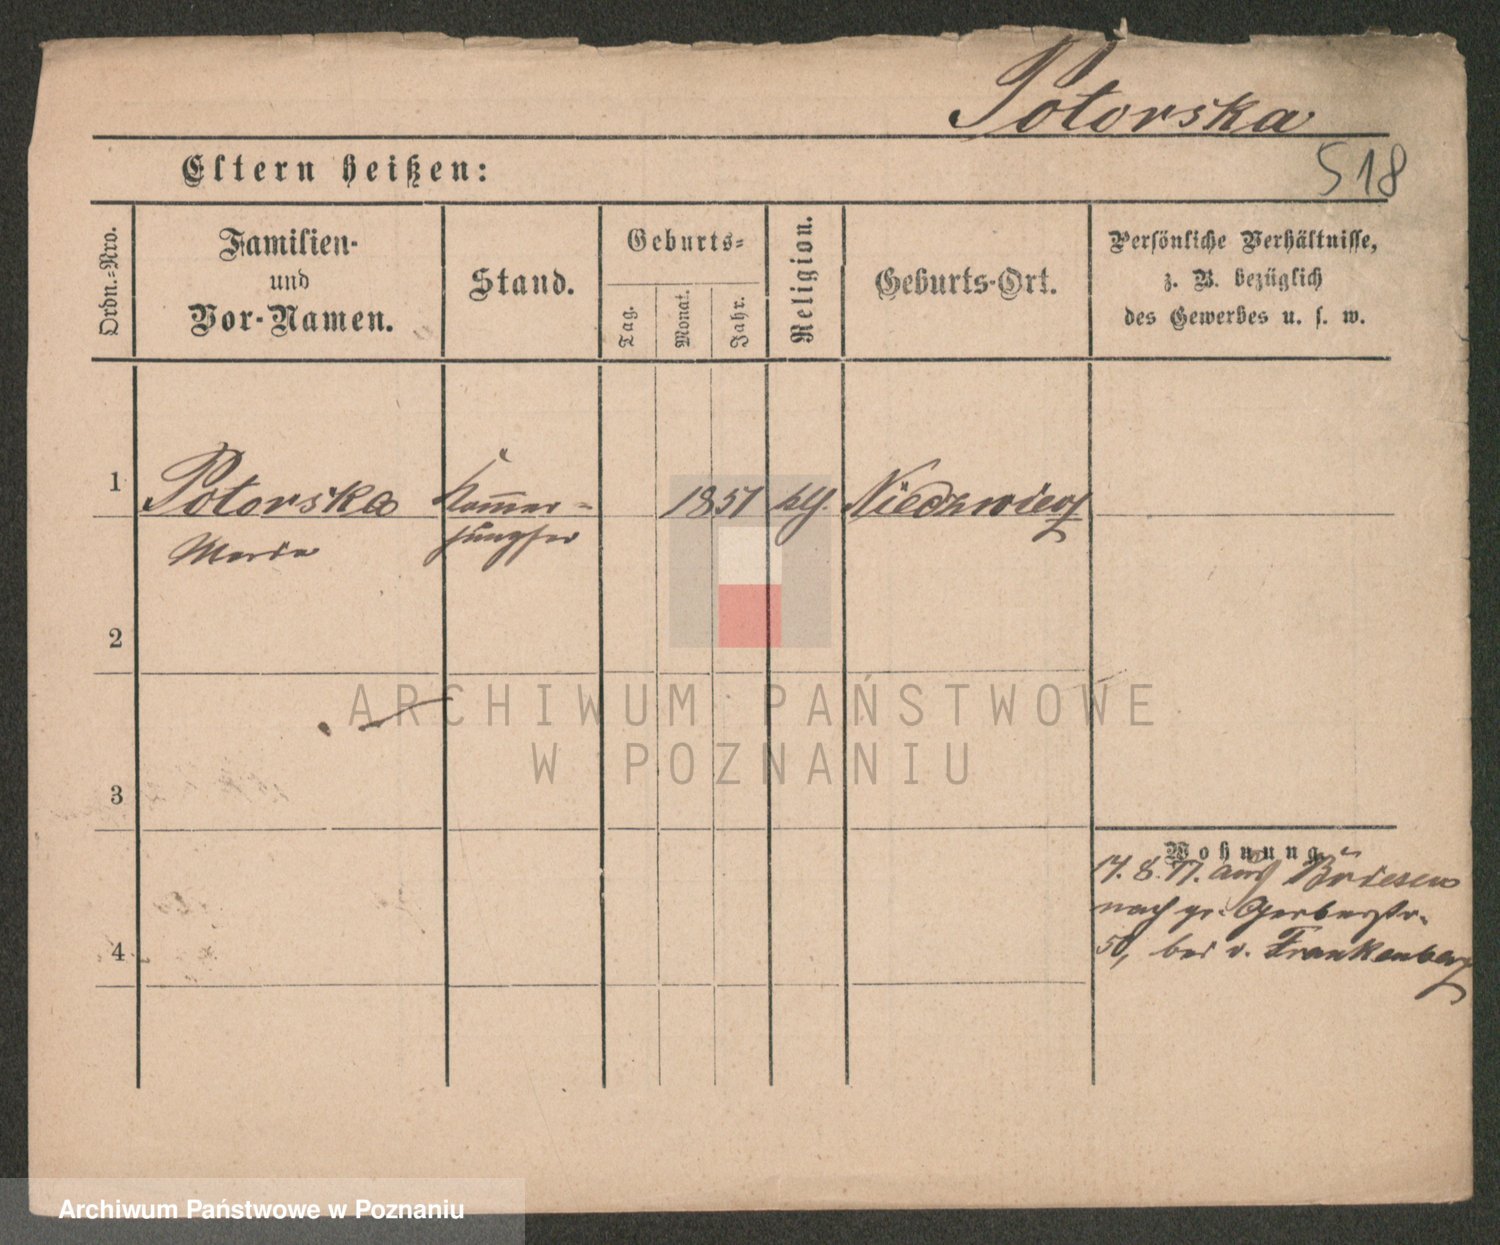 Potorska
518
Eltern heißen:
Ordn.-Nro.
Familien-
und
Vor-Namen.
Stand.
Geburts-
Tag.
Monat.
Jahr.
Religion.
Geburts-Ort.
Persönliche Verhältnisse,
z. B. bezüglich
des Gewerbes u. s. w.
1
Potorska
Maria
Kammer-
jungfer
1851
klg.
Niedzwiedz
2
3
4
Wohnung.
17. 8. 77. aus Briesen
nach gr. Gerberstr.
50, bei v. Frankenberg
ARCHIWUM PAŃSTWOWE
W POZNANIU
Archiwum Państwowe w Poznaniu